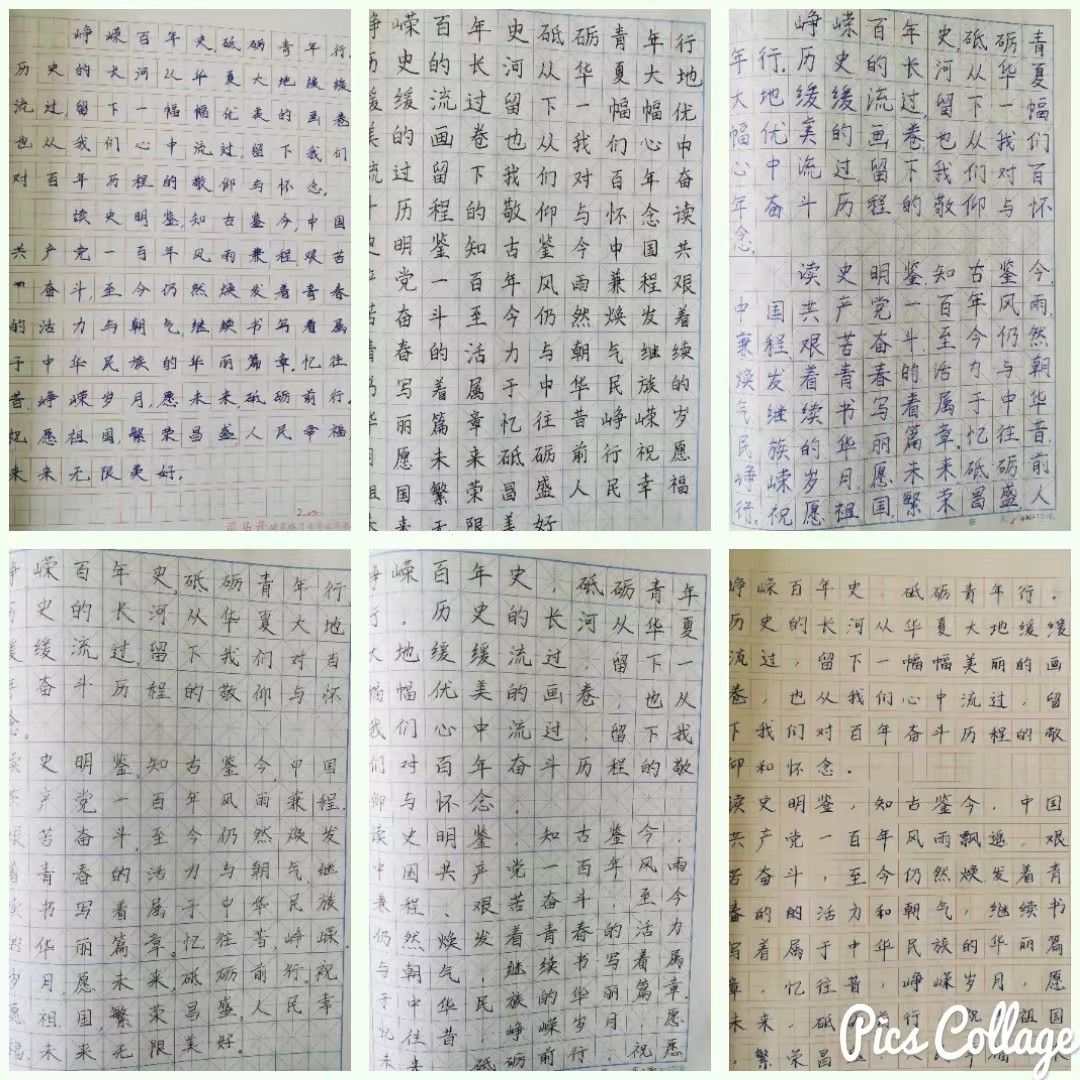 峥嵘百年史,砥砺青年行,
历史的长河从华夏大地缓缓
流过,留下一幅幅优美的画卷
也从我们心中流过,留下我们
对百年历程的敬仰与怀念。
读史明鉴,知古鉴今,中国
共产党一百年风雨兼程,艰苦
奋斗,至今仍然焕发着青春
的活力与朝气,继续书写着属
于中华民族的华丽篇章。忆往
昔,峥嵘岁月,愿未来,砥砺前行。
祝愿祖国,繁荣昌盛,人民幸福,
未来无限美好。
峥嵘百年史砥砺青年行
历史的长河从华夏大地
缓缓流过留下一幅幅优
美的画卷也从我们心中
流过留下我们对百年奋
斗历程的敬仰与怀念读
史明鉴知古鉴今中国共
产党一百年风雨兼程艰
苦奋斗至今仍然焕发着
青春的活力与朝气继续
书写着属于中华民族的
华丽篇章忆往昔峥嵘岁
月愿未来砥砺前行祝愿
祖国繁荣昌盛人民幸福
未来无限美好
峥嵘百年史,砥砺青
年行,历史的长河从华夏
大地缓缓流过,留下一幅
幅优美的画卷,也从我们
心中流过,留下我们对百
年奋斗历程的敬仰与怀
念。
读史明鉴,知古鉴今,
中国共产党一百年风雨,
兼程,艰苦奋斗,至今仍然
焕发着青春的活力与朝
气,继续书写着属于中华
民族的华丽篇章。忆往昔,
峥嵘岁月,愿未来,砥砺前
行,祝愿祖国,繁荣昌盛,人
峥嵘百年史,砥砺青年行,
历史的长河从华夏大地
缓缓流过,留下我们对百
年奋斗历程的敬仰与怀
念。
读史明鉴,知古鉴今,中国
共产党一百年风雨兼程,
艰苦奋斗,至今仍然焕发
着青春的活力与朝气,继
续书写着属于中华民族
的华丽篇章。忆往昔,峥嵘
岁月,愿未来,砥砺前行,祝
愿祖国,繁荣昌盛,人民幸
福,未来无限美好。
峥嵘百年史,砥砺青年
行。历史的长河从华夏
大地缓缓流过,留下一
幅幅优美的画卷,也从
我们心中流过,留下我
们对百年奋斗历程的敬
仰与怀念
读史明鉴,知古鉴今,
中国共产党一百年风雨
兼程、艰苦奋斗,至今
仍然焕发着青春的活力
与朝气,继续书写着属
于中华民族的华丽篇章。
忆往昔,峥嵘岁月,愿
未来砥砺前行,祝愿
峥嵘百年史,砥砺青年行。
历史的长河从华夏大地缓缓
流过,留下一幅幅美丽的画
卷,也从我们心中流过,留
下我们对百年奋斗历程的敬
仰和怀念。
读史明鉴,知古鉴今,中国
共产党一百年风雨飘遥,艰
苦奋斗,至今仍然焕发着青
春的的活力和朝气,继续书
写着属于中华民族的华丽篇
章,忆往昔,峥嵘岁月,愿
未来,砥 行,祝 祖国
,繁荣昌
Pics Collage